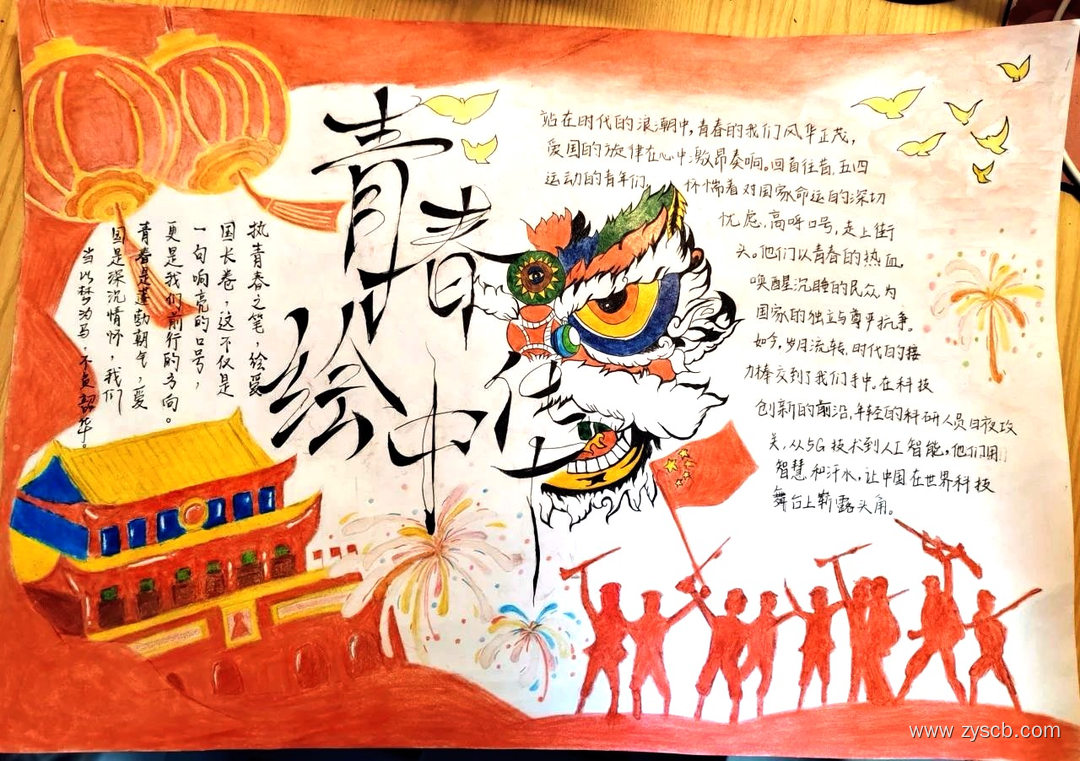 青春
绘中华
执青春之笔,绘爱
国长卷,这不仅是
一句响亮的口号,
更是我们前行的方向。
青春是蓬勃朝气,爱
国是深沉情怀,我们
当以梦为马,不负韶华。
站在时代的浪潮中,青春的我们风华正茂,
爱国的旋律在心中激昂奏响。回首往昔,五四
运动的青年们,怀惴着对国家命运的深切
忧虑,高呼口号,走上街
头。他们以青春的热血,
唤醒沉睡的民众为
国家的独立与尊严抗争。
如今,岁月流转,时代的接
力棒交到了我们手中。在科技
创新的前沿,年轻的科研人员日夜攻
关,从5G技术到人工智能,他们用
智慧和汗水,让中国在世界科技
舞台上崭露头角。
www.zyscb.com